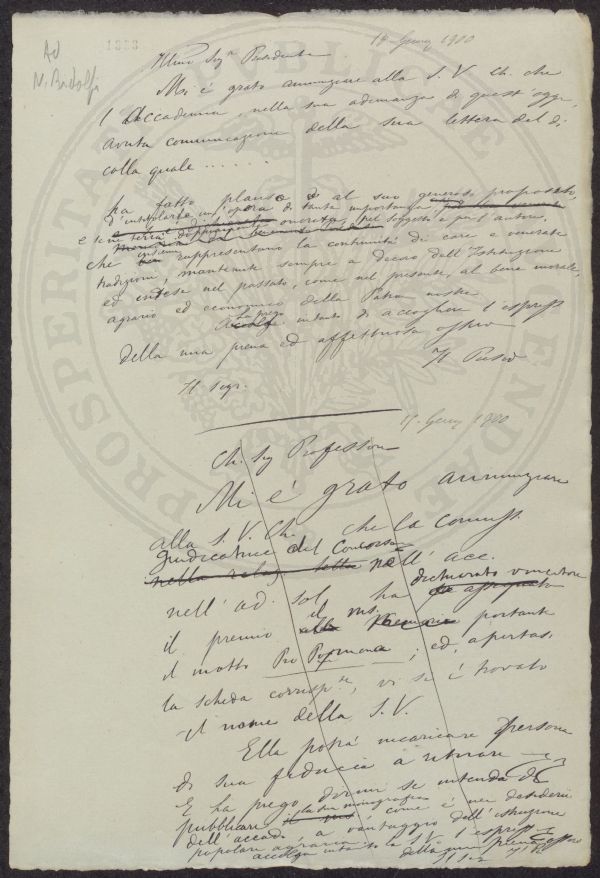 Ad
N. Bidolfi
1900
Illmo Sigr Presidente
Mi è grato annunziare alla S. V. Ch. che
l'Accademia, nella sua adunanza di quest'oggi,
avuta comunicazione della sua lettera del dì
colla quale . . . . . .
ha fatto plauso al suo generoso proposito,
d'intitolare un'opera di tanta importanza
e pel soggetto e per l'autore,
che rappresentano la continuità di care e venerate
tradizioni, mantenute sempre a decoro dell'Istituzione
ed intese nel passato, come nel presente, al bene morale,
agrario ed economico della Patria nostra
La prego intanto di accogliere l'espress.
della mia piena ed affettuosa
Il Presid
Il Segr.
1900
Ch. Sig Professore
Mi è grato annunziare
alla S. V. Ch. che la Commiss.
giudicatrice del Concorso
nell'acc.
nell'ad. sol. ha dichiarato vincitore
il premio il ms. portante
il motto Pro Pomona; ed, apertasi
la scheda corrispte, vi si è trovato
il nome della S. V.
Ella potrà incaricare persona
di sua fiducia a ritirare
E la prego dirmi se intenda di
pubblicare la sua monografia come è nei desiderii
dell'accad. a vantaggio dell'istruzione
popolare agraria
accolga intanto la S. V. l'espress
della mia piena